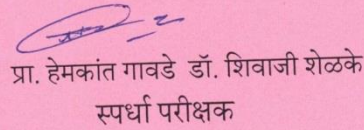 प्रा. हेमकांत गावडे डॉ. शिवाजी शेळके
स्पर्धा परीक्षक